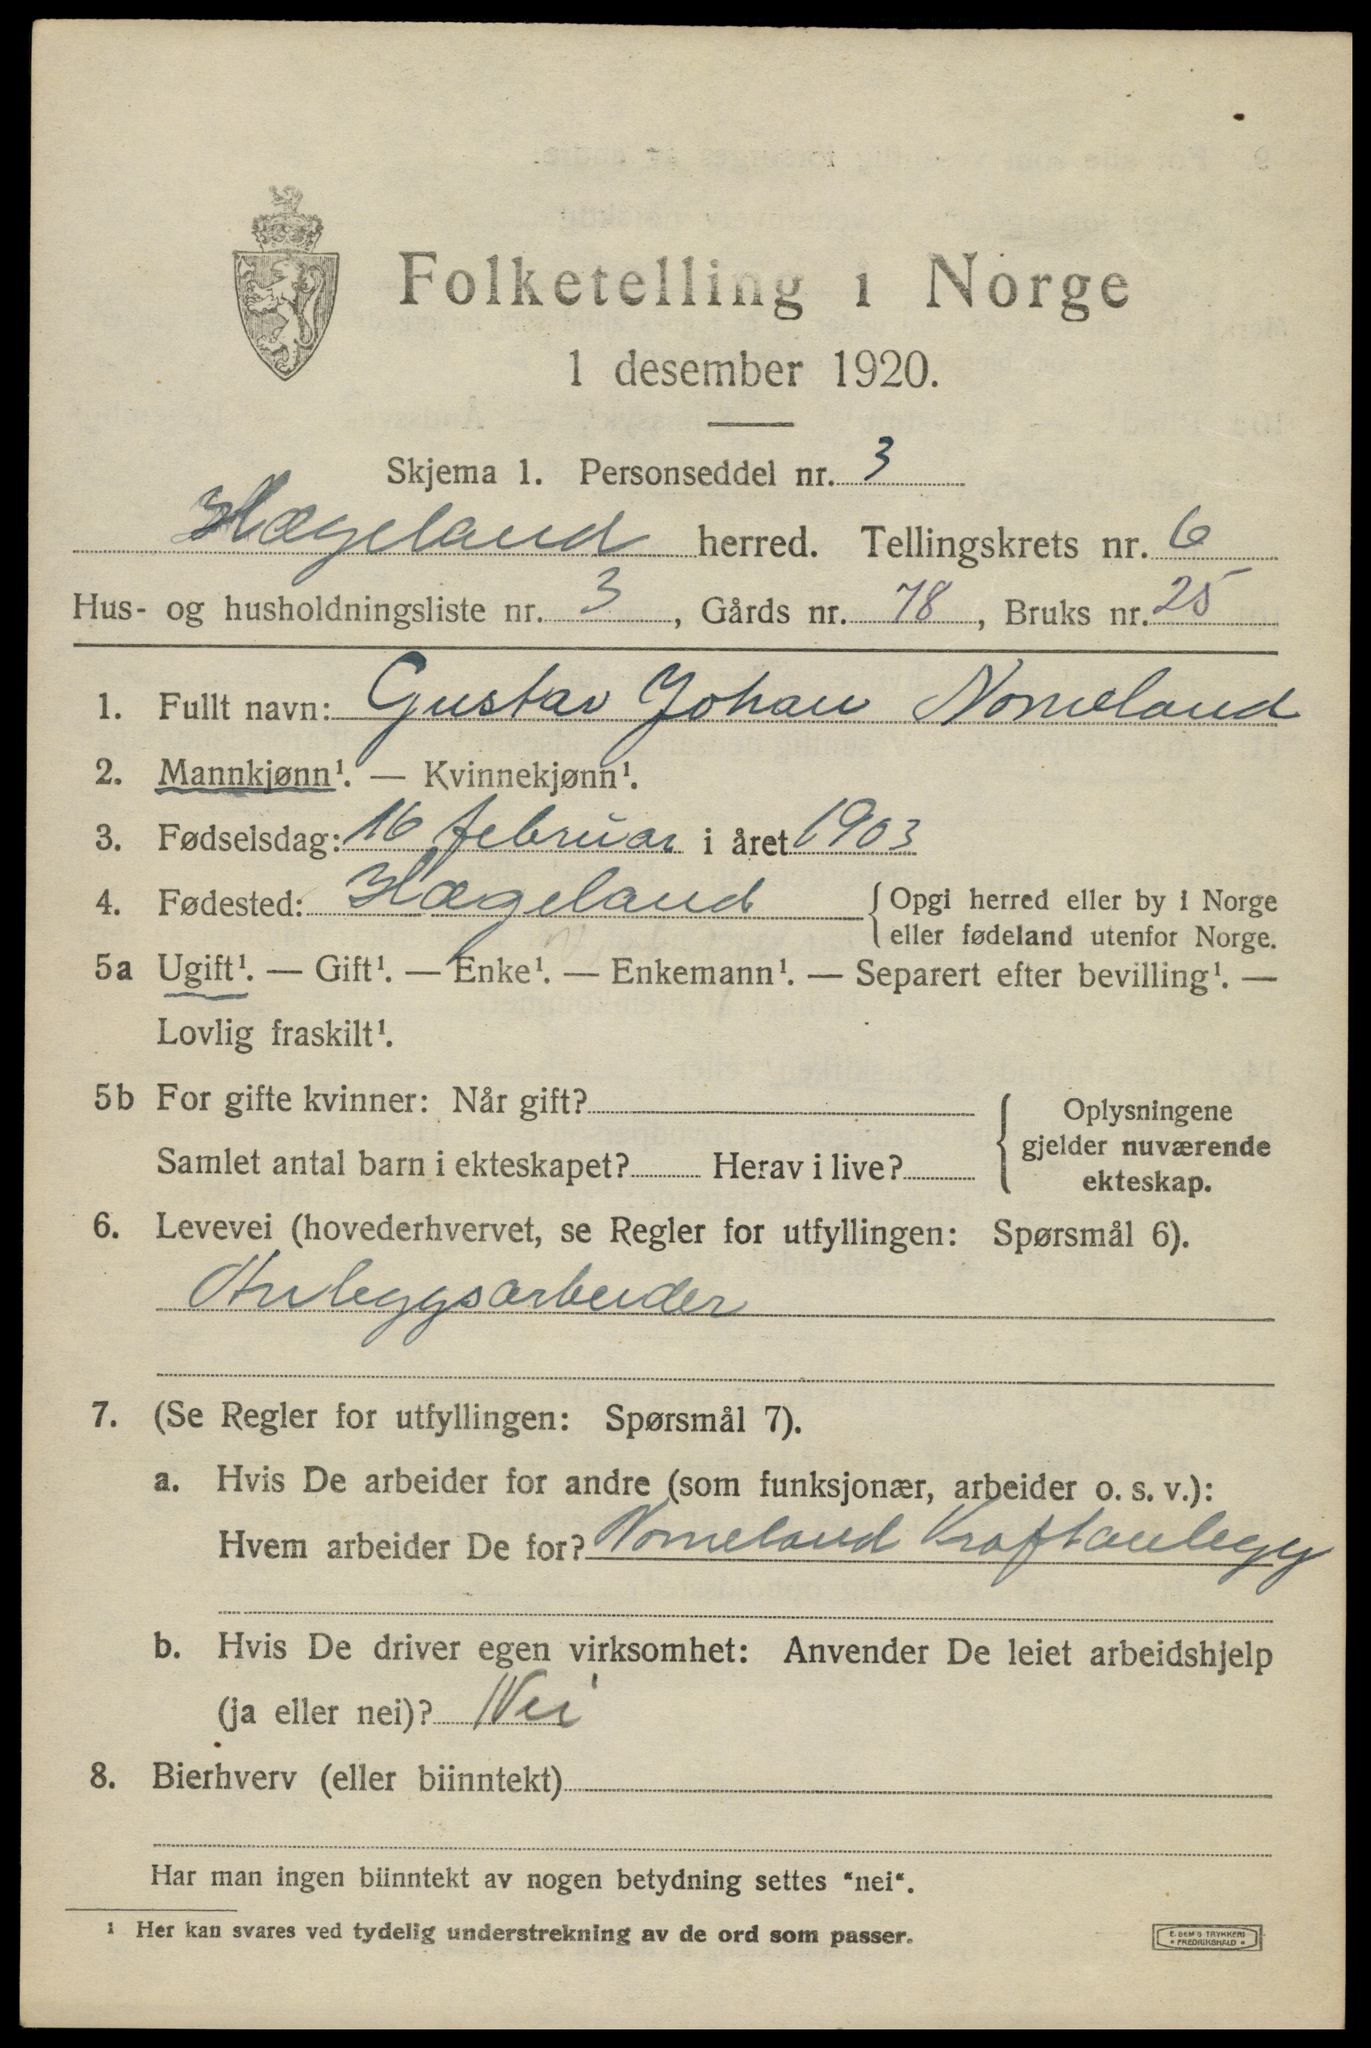 Folketelling i Norge
1 desember 1920.
Skjema 1. Personseddel nr. 3
Hægeland herred. Tellingskrets nr. 6
Hus- og husholdningsliste nr. 3, Gårds nr. 78, Bruks nr. 25
1. Fullt navn: Gustav Johan Nomeland
2. Mannkjønn¹. — Kvinnekjønn¹.
3. Fødselsdag: 16 februar i året 1903
4. Fødested: Hægeland {Opgi herred eller by i Norge
eller fødeland utenfor Norge.
5a Ugift¹. — Gift¹. — Enke¹. — Enkemann¹. — Separert efter bevilling¹. —
Lovlig fraskilt¹.
5b For gifte kvinner: Når gift?
Samlet antal barn i ekteskapet? Herav i live?
{Oplysningene
gjelder nuværende
ekteskap.
6. Levevei (hovederhvervet, se Regler for utfyllingen: Spørsmål 6).
Anleggsarbeider
7. (Se Regler for utfyllingen: Spørsmål 7).
a. Hvis De arbeider for andre (som funksjonær, arbeider o. s. v.):
Hvem arbeider De for? Nomeland Kraftanlegg
b. Hvis De driver egen virksomhet: Anvender De leiet arbeidshjelp
(ja eller nei)? Nei
8. Bierhverv (eller biinntekt)
Har man ingen biinntekt av nogen betydning settes "nei".
¹ Her kan svares ved tydelig understrekning av de ord som passer.
E. SEM'S TRYKKERI
• FREDRIKSHALD •